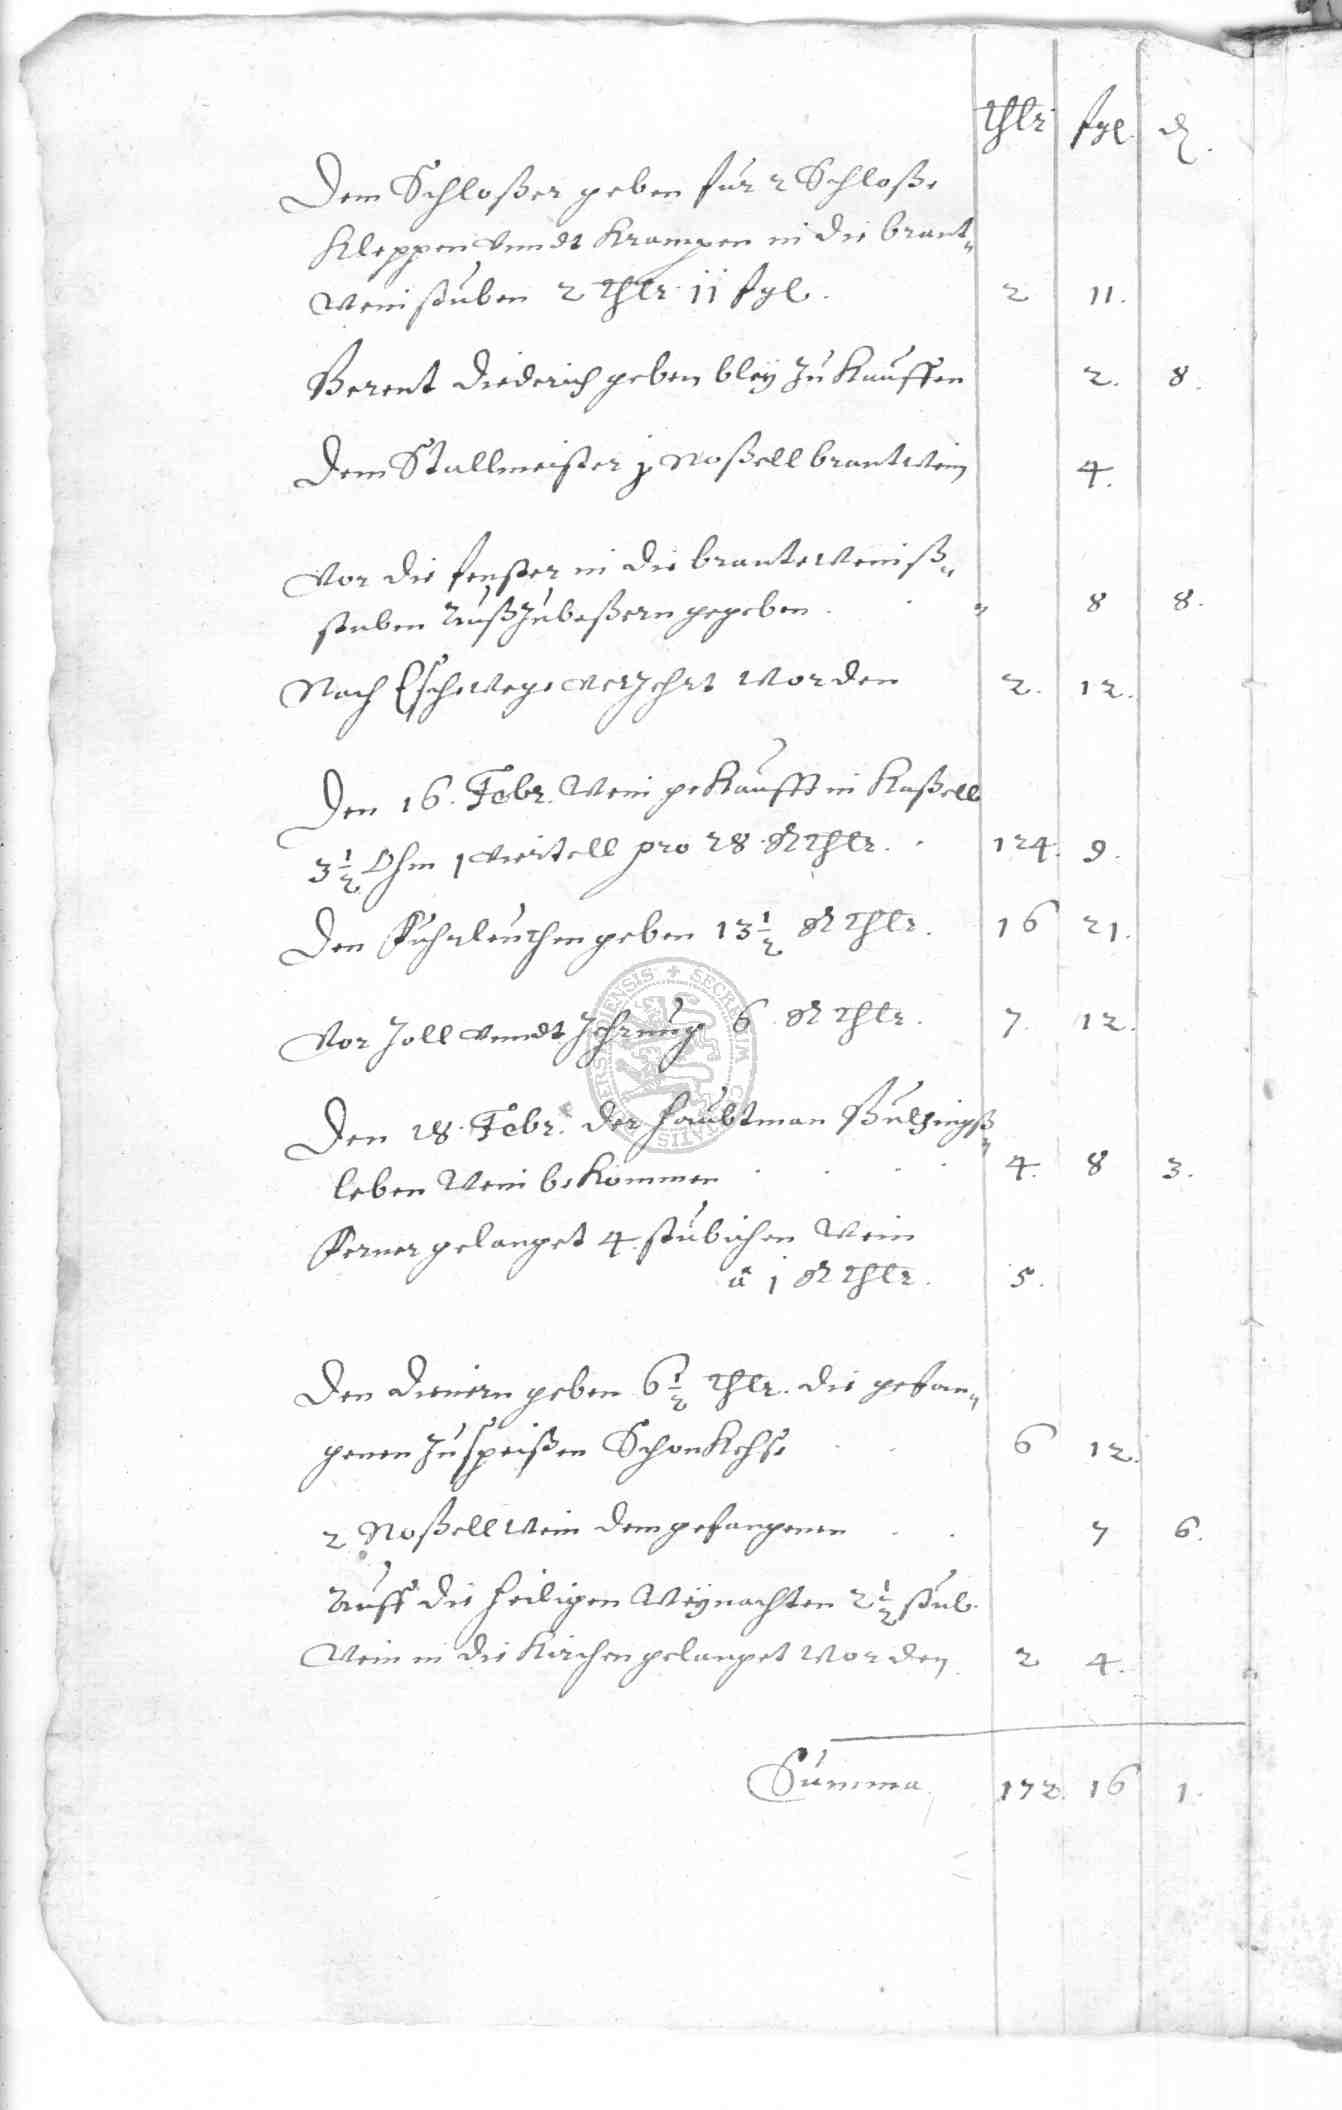 thlr fgl. d.
Dem Schloßer geben für 2 Schloße
Kleppen vnndt Krampen in die brant„
Wein stuben 2 thlr. 11 fgl. 2 11.
Berent Diederich geben bley zu Kauffen 2. 8.
Dem Stallmeister j Noßell brantwein 4.
Vor die fenster in die branteweinß„
stuben Außzubeßern gegeben. „ 8 8.
Nach Eschwege verzehrt worden 2. 12.
Den 16. Febr. Wein gekaufft in Kaßell
3 1/2 Ohm 1 viertell pro 28 Rthlr. 124. 9.
Den Fuhrleuthen geben 13 1/2 Rthlr. 16 21.
Vor Zoll vnndt Zehrung 6 Rthlr. 7. 12.
Den 28. Febr. der Haubtman Bultzingß„
leben Wein bekommen 4. 8 3.
Ferner gelanget 4. stübichen Wein
â j Rthlr. 5.
Den Dienern geben 6 1/2 thlr. die gefan„
genen zu speißen 6 12.
2 Noßell Wein dem gefangenen 7 6.
Auff die Heiligen Weynachten 2 1/2 stub.
Wein in die Kirchen gelanget worden 2 4.
Summa 172. 16 1.